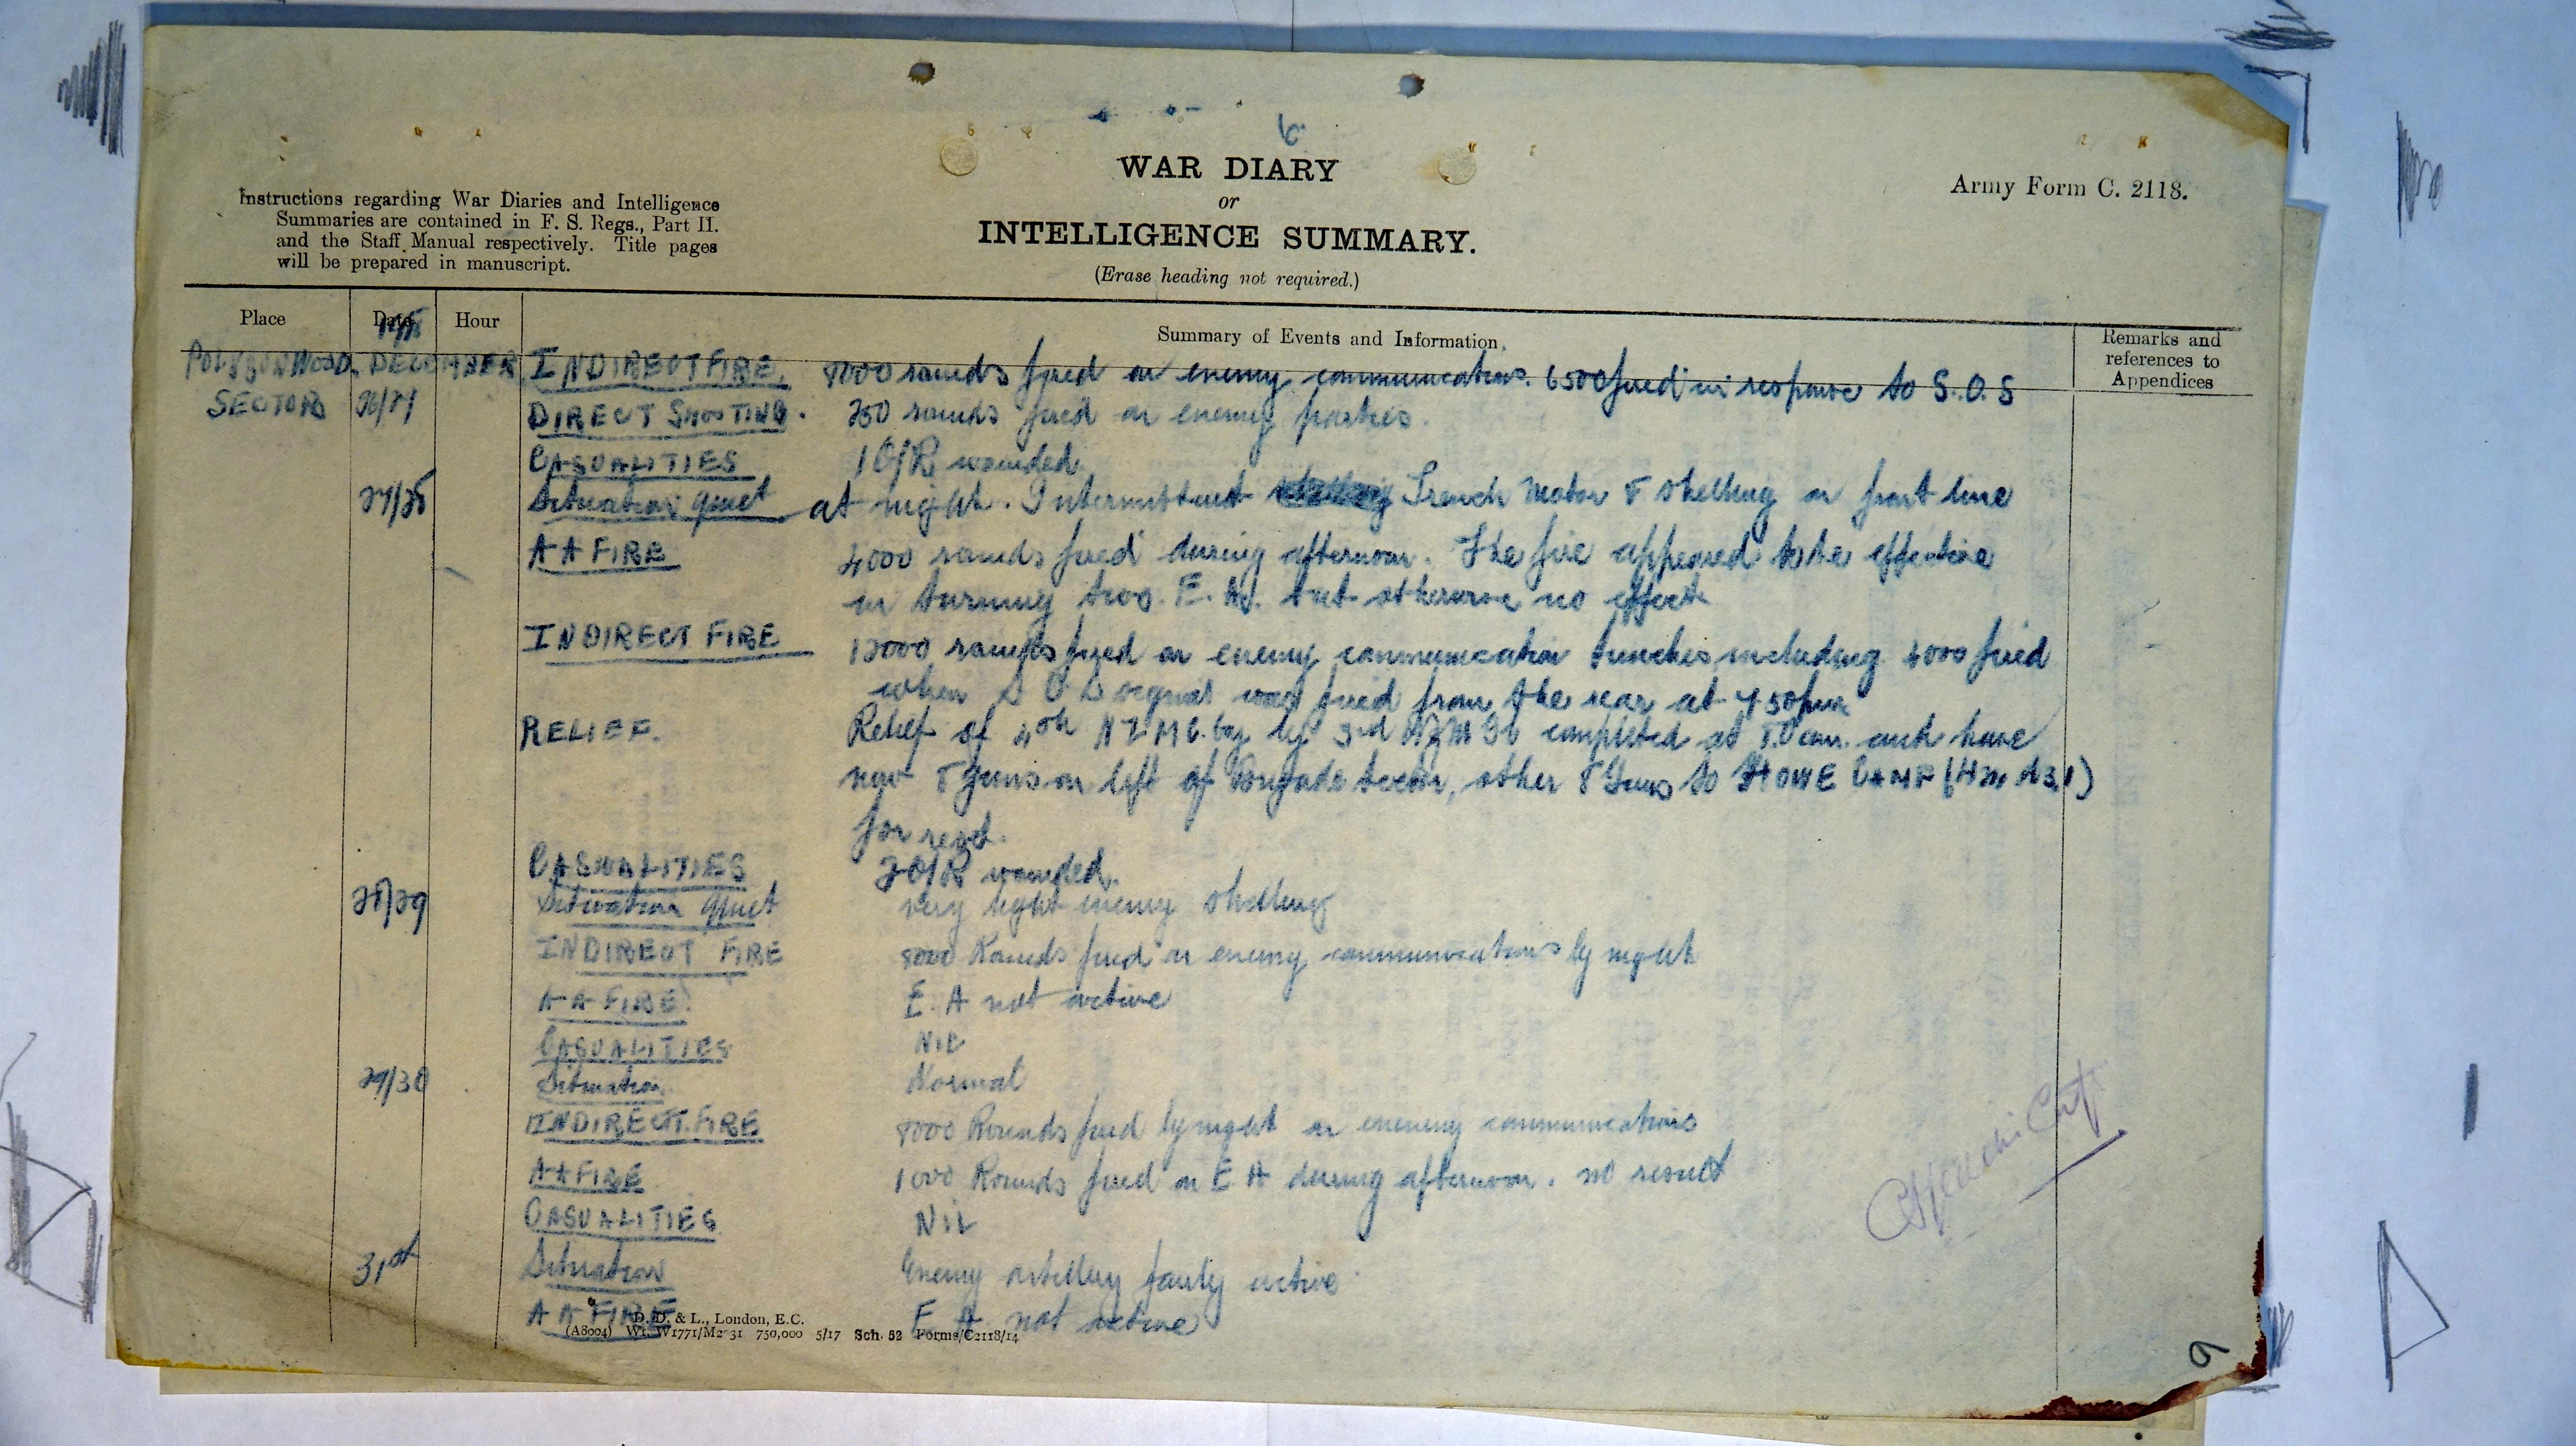 6
WAR DIARY
or
INTELLIGENCE SUMMARY.
(Erase heading not required.)
Army Form C. 2118.
Instructions regarding War Diaries and Intelligence
Summaries are contained in F. S. Regs., Part II.
and the Staff Manual respectively. Title pages
will be prepared in manuscript.
Place Date Hour Summary of Events and Information Remarks and
references to
Appendices
POLYGON WOOD DECEMBER INDIRECT FIRE. 8000 rounds fired on enemy communications. 6500 fired in response to S.O.S
SECTOR 26/27 DIRECT SHOOTING. 250 rounds fired on enemy parties.
CASUALITIES 1 O/R wounded.
27/28 Situation quiet at night. Intermittent Trench Motor & shelling on front line
A A FIRE 4000 rounds fired during afternoon. The fire appeared to be effective
in turning two E. A. but otherwise no effect
INDIRECT FIRE 12000 rounds fired on enemy communication trenches including 4000 fired
when S O S signal was fired from the rear at 7 50 pm
RELIEF. Relief of 4th N Z M G. Coy by 3rd completed at each have
now 8 guns on left of Brigade sector, other 8 Guns to HOWE CAMP
for rest.
CASUALITIES 2 O/R wounded.
28/29 Situation quiet very light enemy shelling
INDIRECT FIRE 8000 Rounds fired on enemy communications by night
A A FIRE. E. A not active
CASUALITIES NIL
29/30 Situation Normal
INDIRECT. FIRE 8000 Rounds fired by night on enemy communications
A A FIRE 1000 Rounds fired on E A during afternoon. no result
CASUALITIES NIL
31st Situation Enemy artillery fairly active.
A A FIRE E A not active
D. D. & L., London, E.C.
(A8004) Wt. W1771/M2 31 750,000 5/17 Sch. 52 Forms/C2118/14
9